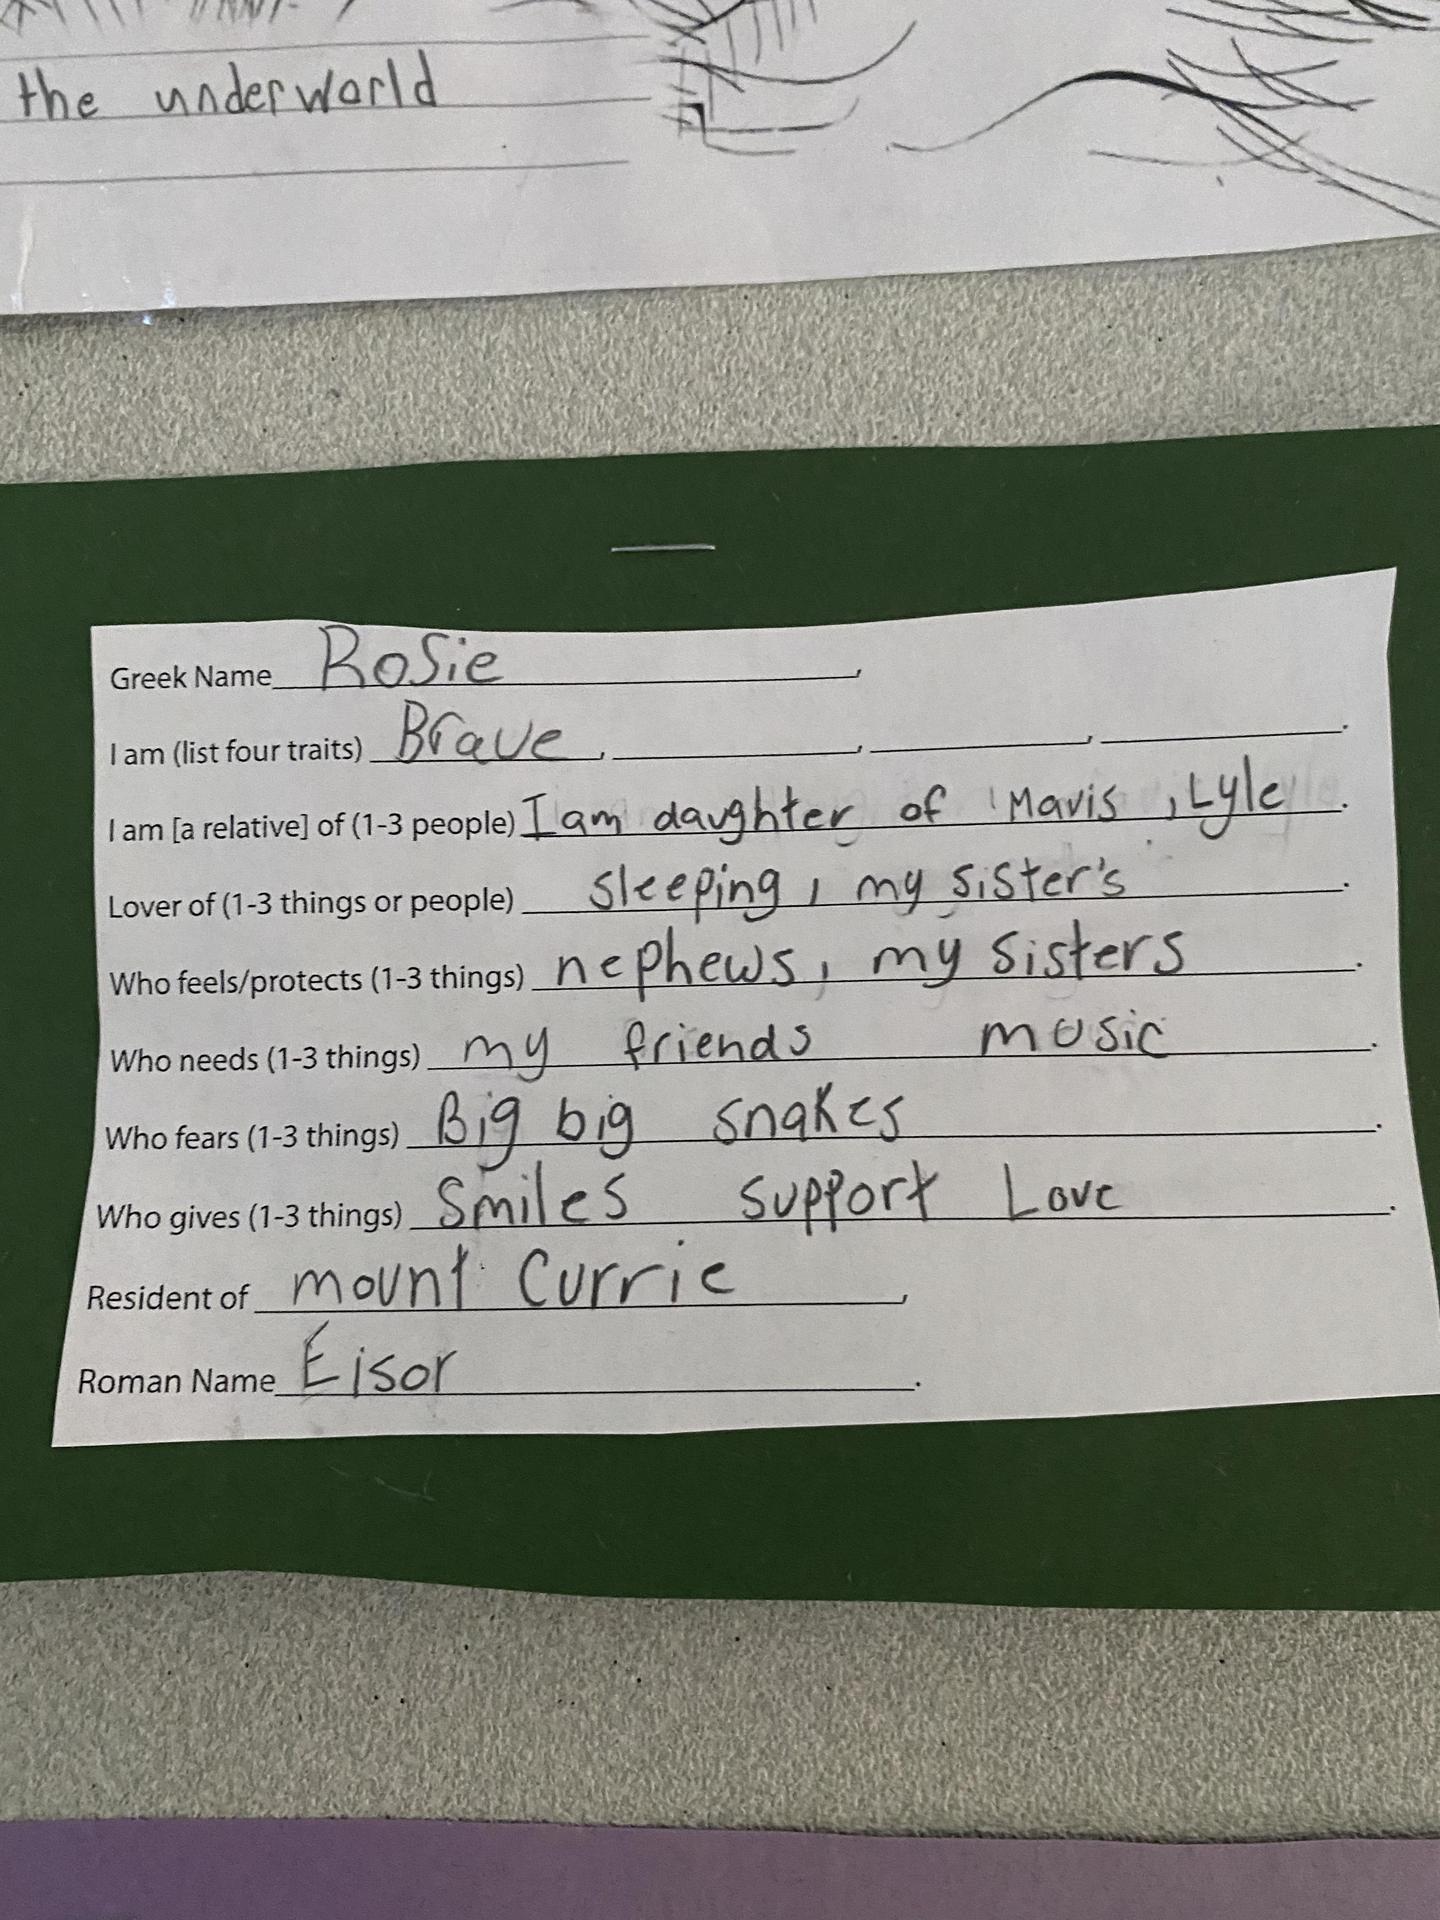 the underworld
Greek Name Rosie,
I am (list four traits) Brave, , , .
I am [a relative] of (1-3 people) I am daughter of Mavis, Lyle.
Lover of (1-3 things or people) sleeping, my sister's.
Who feels/protects (1-3 things) nephews, my sisters.
Who needs (1-3 things) my friends music.
Who fears (1-3 things) Big big snakes.
Who gives (1-3 things) Smiles support Love.
Resident of mount Currie,
Roman Name Eisor.